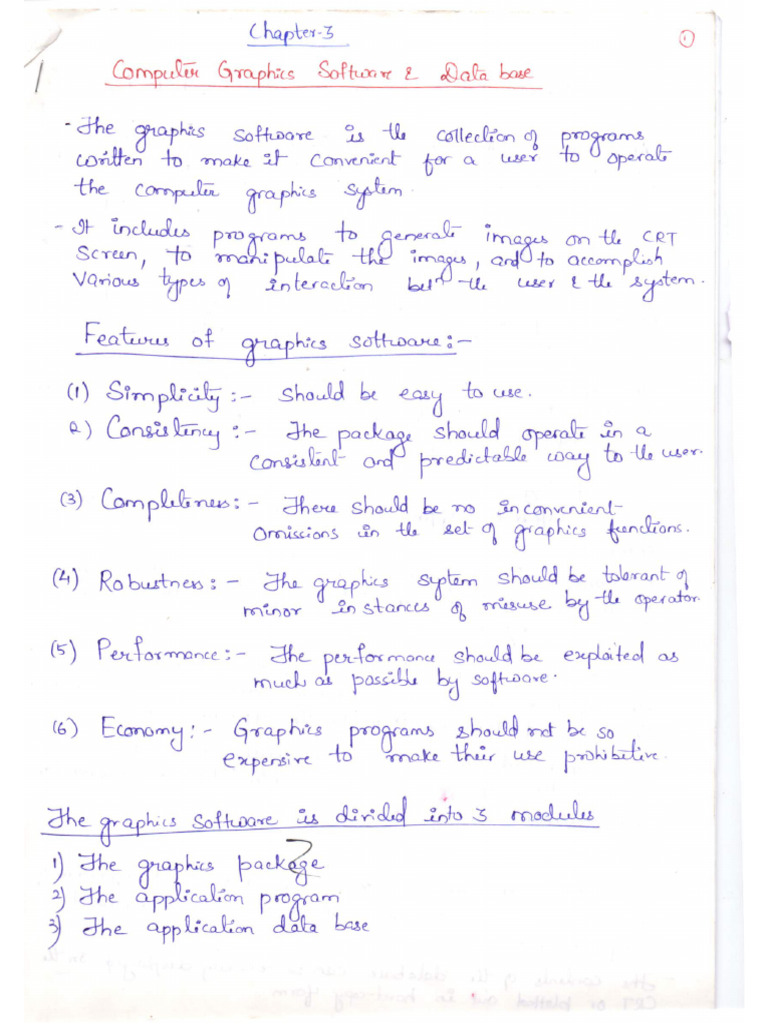 Chapter-3
1
Computer Graphics Software & Data base
- The graphics software is the collection of programs
written to make it convenient for a user to operate
the computer graphics system.
- It includes programs to generate images on the CRT
Screen, to manipulate the images, and to accomplish
various types of interaction betn the user & the system.
Features of graphics software:-
(1) Simplicity:- Should be easy to use.
2) Consistency:- The package should operate in a
consistent and predictable way to the user.
(3) Completeness:- There should be no inconvenient
omissions in the set of graphics functions.
(4) Robustness:- The graphics system should be tolerant of
minor instances of misuse by the operator.
(5) Performance:- The performance should be exploited as
much as possible by software.
(6) Economy:- Graphics programs should not be so
expensive to make their use prohibitive.
The graphics software is divided into 3 modules
1) The graphics package
2) The application program
3) The application data base